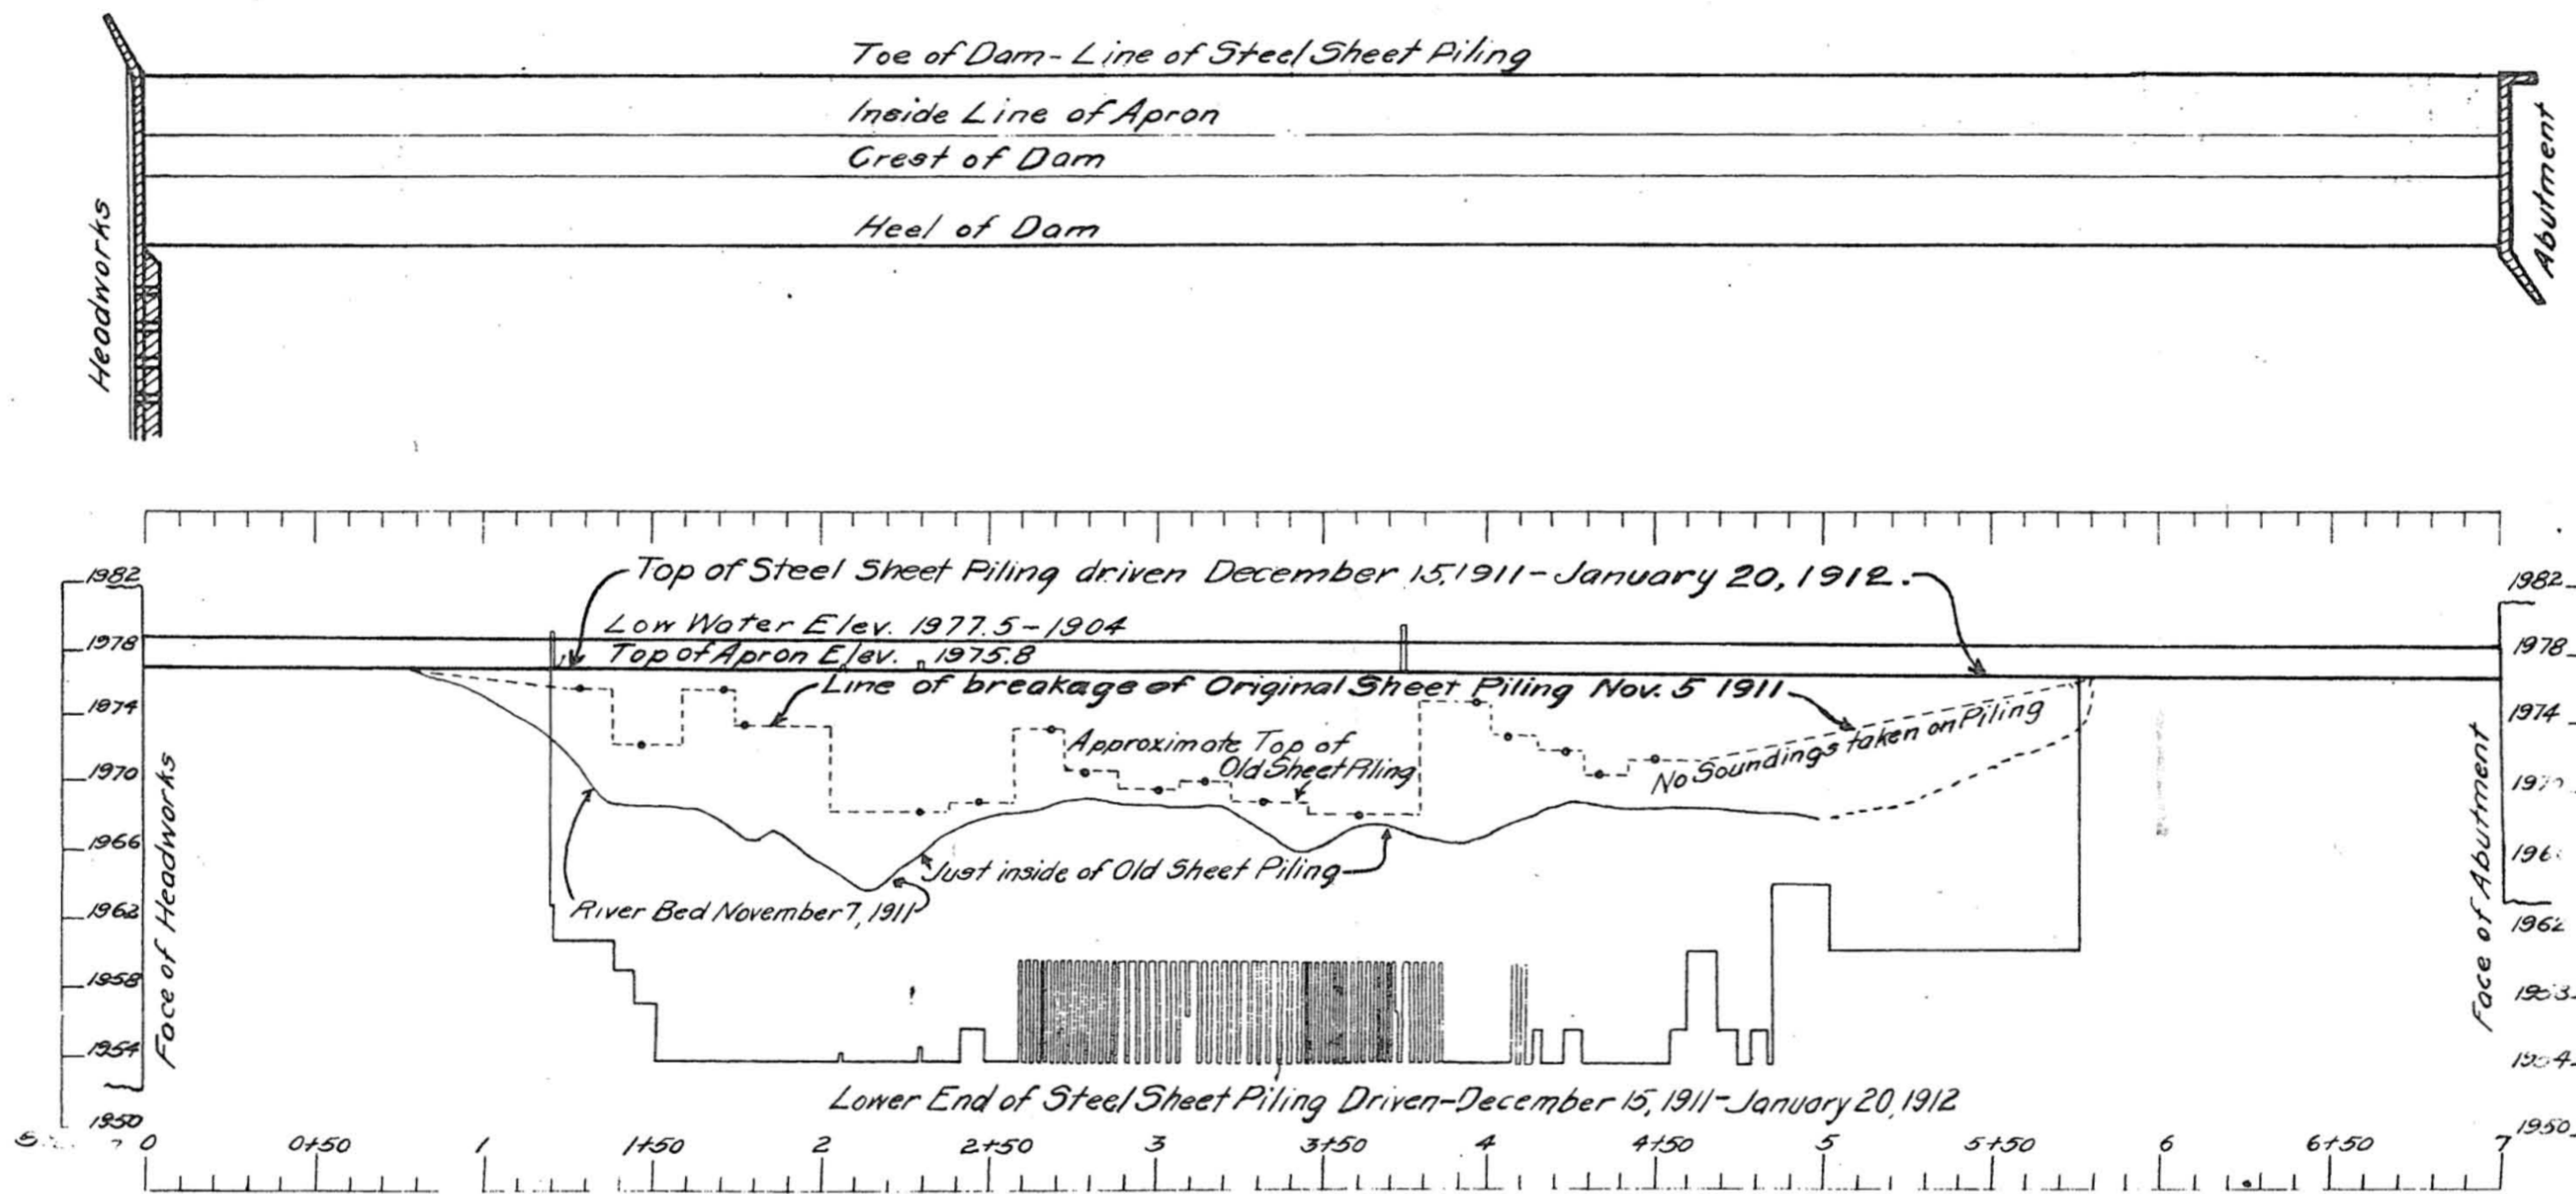 Toe of Dam - Line of Steel Sheet Piling
Inside Line of Apron
Crest of Dam
Heel of Dam
Headworks
Abutment
Top of Steel Sheet Piling driven December 15, 1911 - January 20, 1912.
Low Water Elev. 1977.5 - 1904
Top of Apron Elev. 1975.8
Line of breakage of Original Sheet Piling Nov. 5 1911
Approximate Top of
Old Sheet Piling
No Soundings taken on Piling
Just inside of Old Sheet Piling
River Bed November 7, 1911
Lower End of Steel Sheet Piling Driven - December 15, 1911 - January 20, 1912
Face of Headworks
Face of Abutment
1982
1978
1974
1970
1966
1962
1958
1954
1950
1982
1978
1974
1962
1950
0 0+50 1 1+50 2 2+50 3 3+50 4 4+50 5 5+50 6 6+50 7